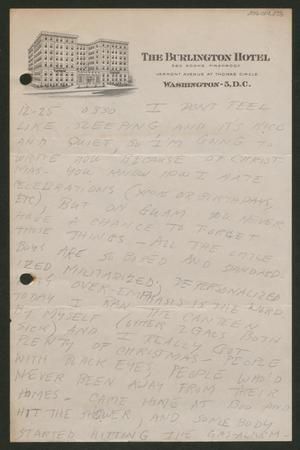 THE BURLINGTON HOTEL
360 ROOMS, FIREPROOF
VERMONT AVENUE AT THOMAS CIRCLE
WASHINGTON-5, D.C.
12-25 0330 I DON'T FEEL
LIKE SLEEPING, AND IT'S NICE
AND QUIET, SO I'M GOING TO
WRITE NOW BECAUSE OF CHRIST-
MAS - YOU KNOW HOW I HATE
CELEBRATIONS ( OR BIRTHDAYS,
ETC), BUT ON GUAM YOU NEVER
HAVE A CHANCE TO FORGET
THOSE THINGS - ALL THE LITTLE
BOYS ARE SO BORED AND STANDARD-
IZED, MILITARIZED, DEPERSONALIZED
OVER-EMPHASIS IS THE WORD.
TODAY I RAN THE CANTEEN
BY MYSELF (OTHER 2 GALS BOTH
SICK) AND I REALLY GOT
PLENTY OF CHRISTMAS - PEOPLE
WITH BLACK EYES, PEOPLE WHO'D
NEVER BEEN AWAY FROM THEIR
HOMES - CAME HOME AT 800 AND
HIT THE SHOWER, AND SOME BODY
STARTED HITTING THE GAS ALARM -